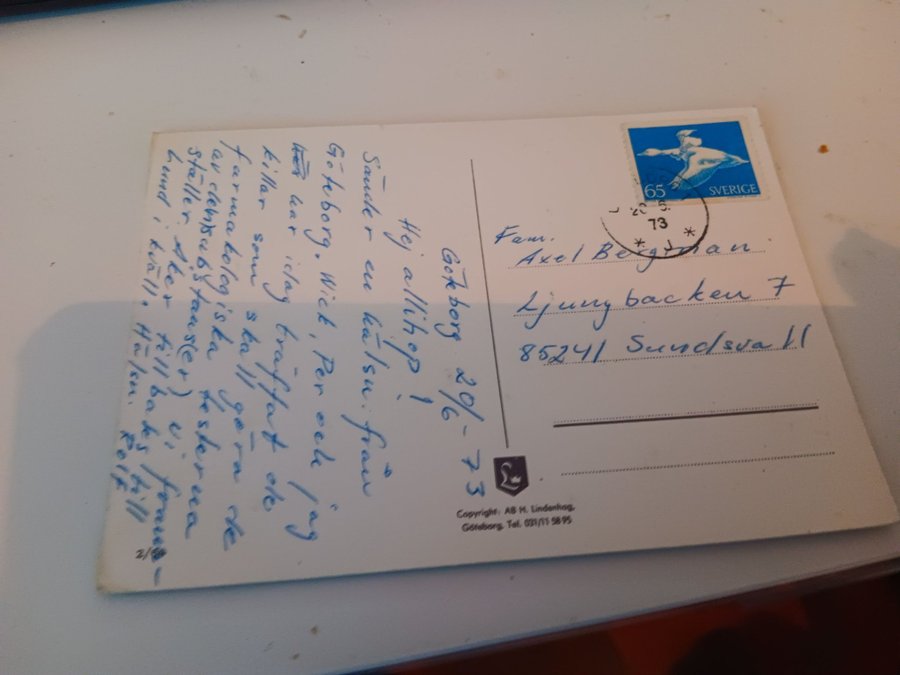 Göteborg 20/6 - 73
Hej allihop!
Sänder en hälsn. från
Göteborg. Per och jag
har idag träffat de
killar som skall göra de
farmakologiska testerna
av den substans(er) vi fram-
ställer. Åker tillbaks till
Lund i kväll. Hälsn. Rolf
65 SVERIGE
73
Fam.
Axel Bergman.
Ljungbacken 7
85241 Sundsvall
Copyright: AB H. Lindenhag,
Göteborg. Tel. 031/11 58 95